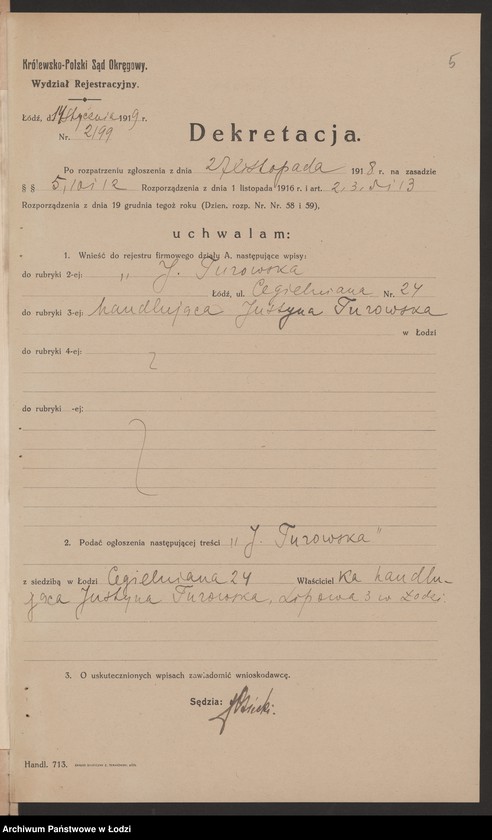 5
Królewsko-Polski Sąd Okręgowy.
Wydział Rejestracyjny.
Łódź, d. 14 stycznia 1919 r.
Nr. 2199
Dekretacja.
Po rozpatrzeniu zgłoszenia z dnia 27 listopada 1918 r. na zasadzie
§ § 5, 10 i 12 Rozporządzenia z dnia 1 listopada 1916 r. i art. 2, 3, i 13
Rozporządzenia z dnia 19 grudnia tegoż roku (Dzien. rozp. Nr. Nr. 58 i 59),
uchwalam:
1. Wnieść do rejestru firmowego działu A. następujące wpisy:
do rubryki 2-ej: „J. Turowska
Łódź, ul. Cegielniana Nr. 24
do rubryki 3-ej: handlująca Justyna Turowska
w Łodzi
do rubryki 4-ej:
do rubryki -ej:
2. Podać ogłoszenia następującej treści „J. Turowska"
z siedzibą w Łodzi Cegielniana 24 Właściciel ka handlu-
jąca Justyna Turowska, Lipowa 3 w Łodzi.
3. O uskutecznionych wpisach zawiadomić wnioskodawcę.
Sędzia:
Handl. 713.
Archiwum Państwowe w Łodzi